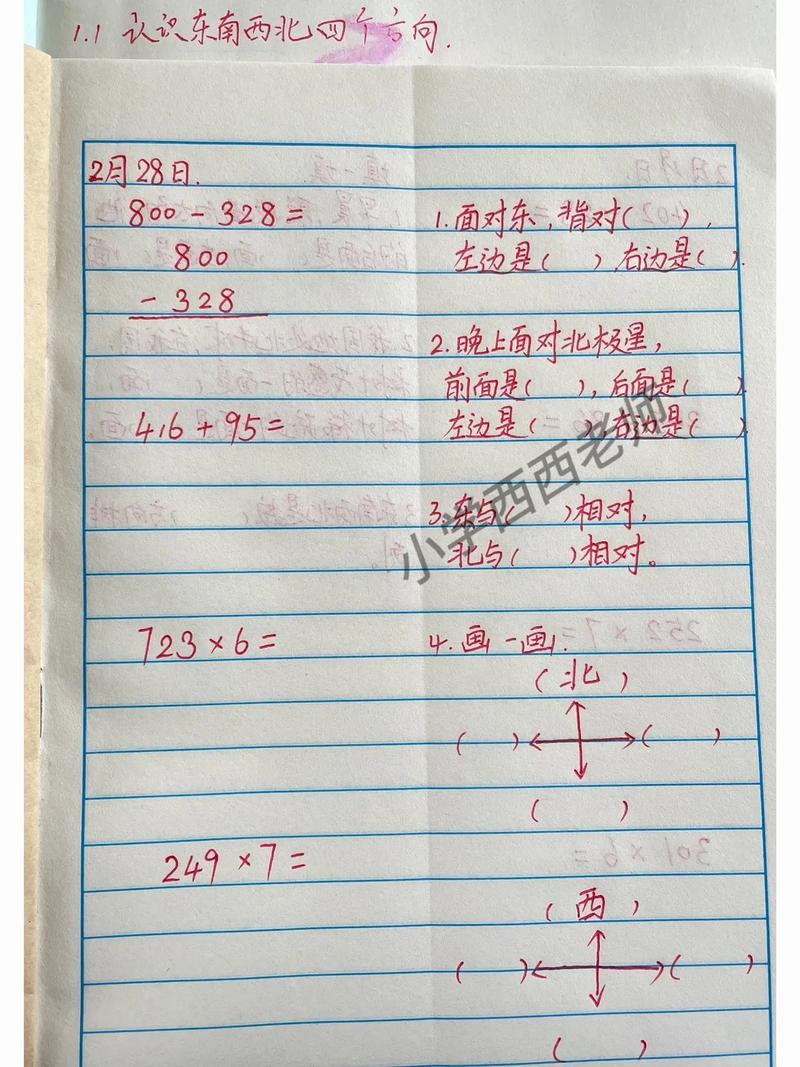 1.1 认识东南西北四个方向.
2月28日.
800-328=
800
-328
416+95=
723×6=
249×7=
1.面对东,背对( ),
左边是( ),右边是( ).
2.晚上面对北极星,
前面是( ),后面是( )
左边是( ),右边是( )
3.东与( )相对,
北与( )相对。
4.画一画.
(北)
( ) ( )
( )
(西)
( ) ( )
( )
小学西西老师